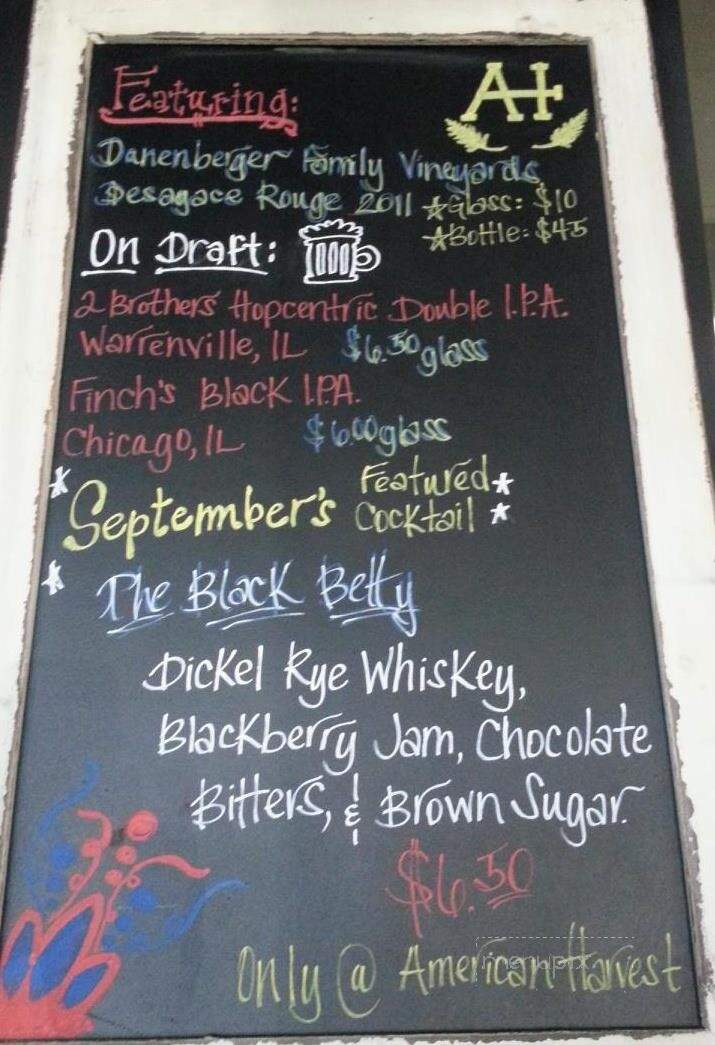 Featuring:
AH
Danenberger Family Vineyards
Desagace Rouge 2011 ★Glass: $10
★Bottle: $45
On Draft:
2 Brothers Hopcentric Double I.P.A.
Warrenville, IL $6.50 glass
Finch's Black I.P.A.
Chicago, IL $6.00 glass
★ September's Featured Cocktail ★ ★
★ The Black Betty
Dickel Rye Whiskey,
Blackberry Jam, Chocolate
Bitters, & Brown Sugar.
$6.50
Only @ American Harvest
menupix